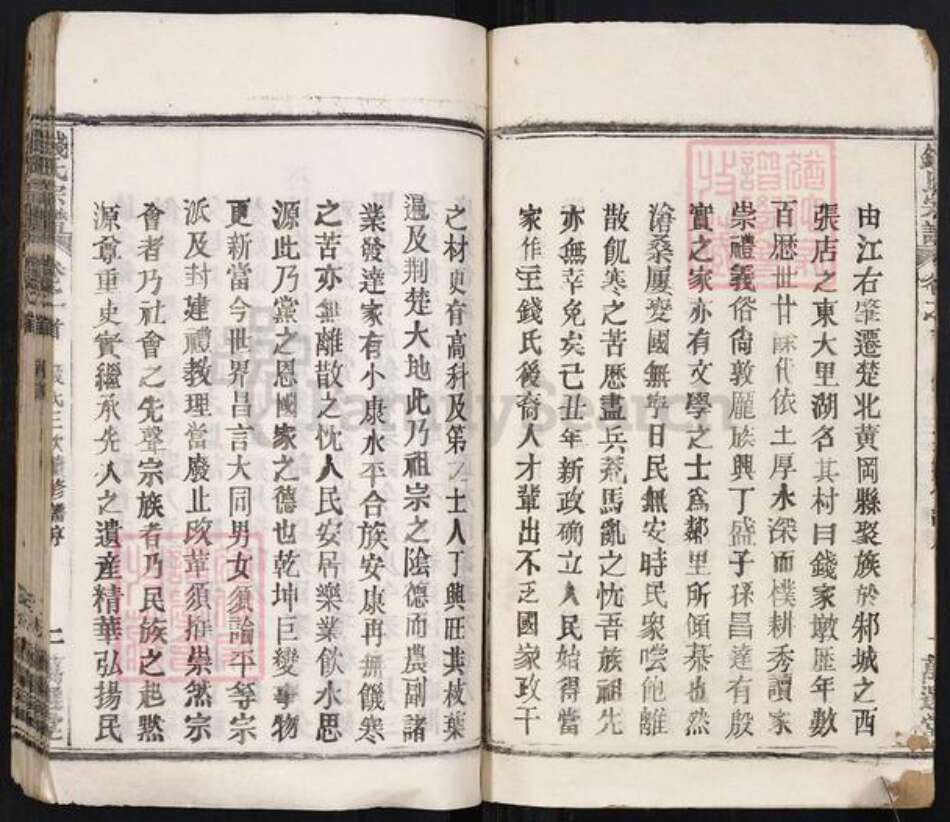 由江右肇遷楚北黃岡縣聚族於邾城之西
張店之東大里湖名其村曰錢家墩歷年數
百歷世廿餘代依土厚水深而樸耕秀讀家
崇禮義俗尙敦龐族興丁盛子孫昌達有殷
實之家亦有文學之士爲鄰里所傾慕也然
滄桑屢變國無寧日民無安時民衆嘗飽離
散飢寒之苦歷盡兵荒馬亂之忧吾族祖先
亦無幸免矣己丑年新政确立人民始得當
家作主錢氏後裔人才輩出不乏國家政干
之材更有高科及第之士人丁興旺共枝葉
遍及荆楚大地此乃祖宗之陰德而農副諸
業發達家有小康水平合族安康再無饑寒
之苦亦無離散之忧人民安居樂業飲水思
源此乃黨之恩國家之德也乾坤巨變事物
更新當今世界昌言大同男女須論平等宗
派及封建禮教理當廢止改革須推崇然宗
會者乃社會之先聲宗族者乃民族之起㸃
源尊重史實繼承先人之遺産精華弘揚民
錢氏宗譜
卷之一首
錢氏三次續修譜序
二
萬選堂
FamilySearch